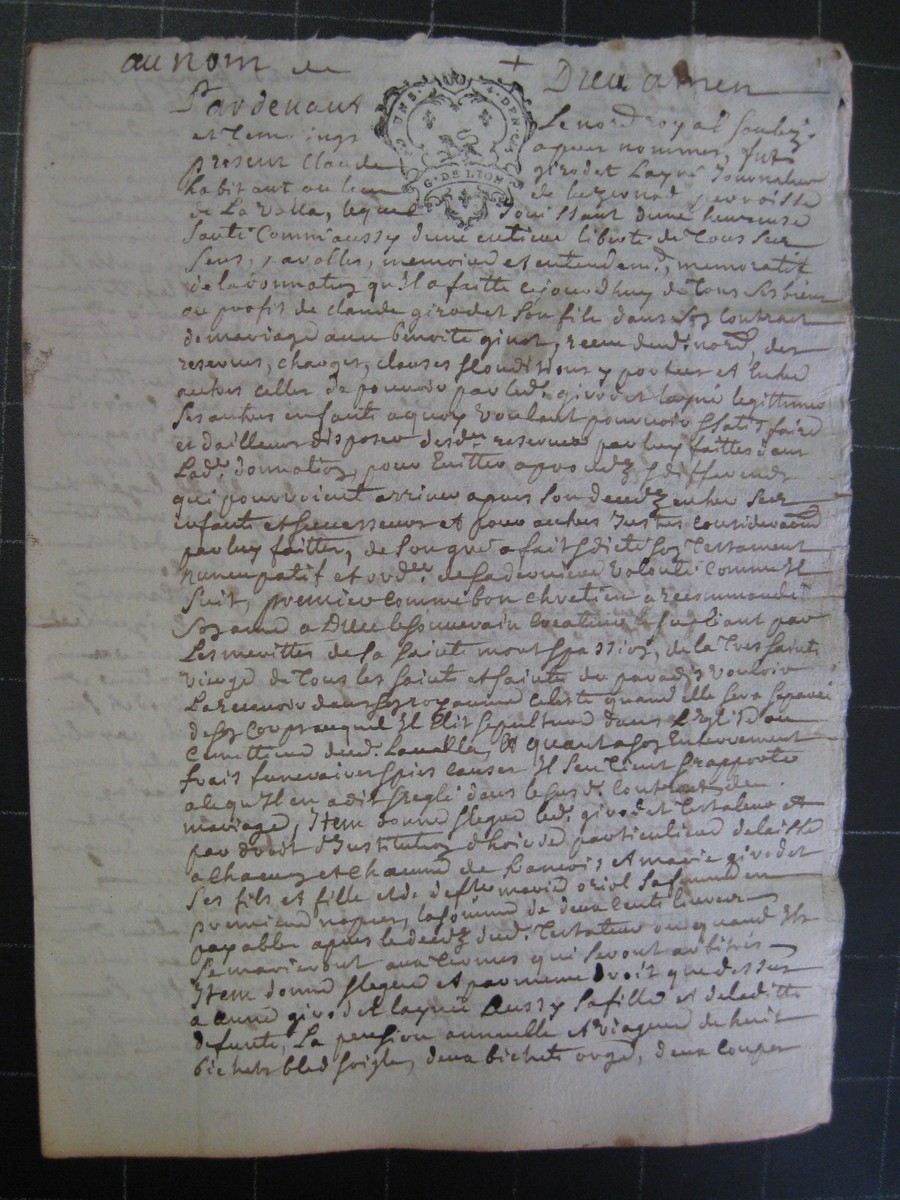 au nom de + Dieu amen
G. DE LYON
Pardevant Le nore royal soubz.
et temoings apres nommes, fut
present Claude girodet Layné Journalier
habitant au lieu de paroisse
de La Valla, lequel Jouissant dune heureuse
santé Comm'aussy dune entiere liberté de Tous ses
sens, parolles, memoire et entendemt, memoratif
de la donnation qu'il a faitte cejourdhuy de tous ses biens
au profit de claude girodet son fils dans son contract
de mariage avec benoite ginot, receu dud. nore, des
reserves, charges, clauses & conditions y portées et Entre
autres celles de pouvoir par led. girodet layné legittimer
ses autres enfants a quoy voulant pourvoir & satisfaire
et dailleurs disposer desd. reserves par luy faittes dans
Lad. donnation, pour Eviter a proces & differends
qui pourroient arriver apres son deceds entre ses
enfants et successeurs et pour autres Justes considerations
par luy faittes, de son gré a fait & dicté son Testament
nuncupatif et ordre de sa derniere volonté comme Il
suit, premier comme bon chretien a recommandé
son ame a Dieu le souverain createur le supliant par
Les merittes de sa sainte mort & passion, de la Tres Sainte
vierge de Tous les saints et saintes du paradis vouloir
La recevoir dans son royaume celeste quand elle sera separée
de son corps auquel Il Elit sepulture dans L'Eglise ou
Cimettiere dud. Lavalla, Et quant a son Enterrement
frais funeraires & pies causes Il s'en tient & rapporte
a ce qu'il en a dit & reglé dans le susd. Contract de
mariage, Item donne & legue led. girodet Testateur et
par droit d'Institution d'hoirie particuliere delaisse
a chacun et chacune de Francois, et marie girodet
ses fils et fille et de deffte marie oriol sa femme en
premieres nopces, la somme de deux cents livres
payables apres le deceds dud. Testateur ou quand Ils
se marieront aux termes qui seront arbitrés
Item donne & legue et par meme droit que dessus
a anne girodet laynée aussy sa fille et de laditte
defunte, La pension annuelle et viagere de huit
bichets bled seigle, deux bichets orge, deux coupes